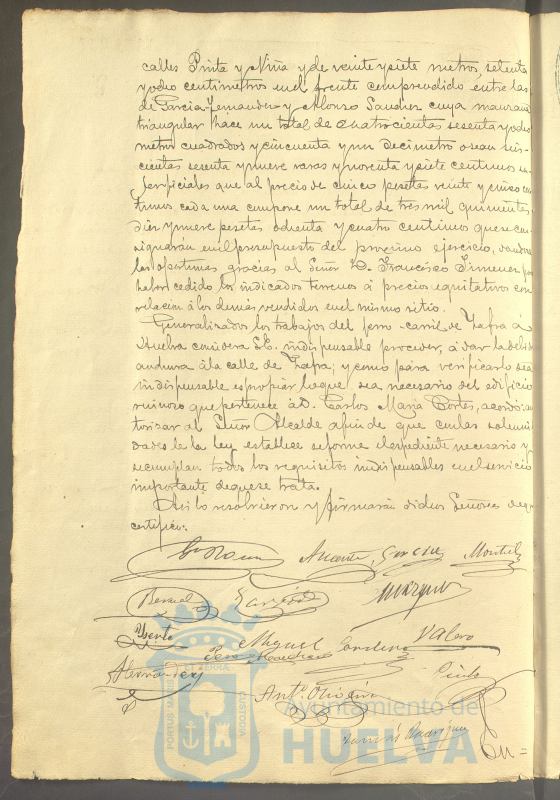 calles Pinta y Niña y de veinte y siete metros, setenta
y ocho centimetros en el frente comprendido entre las
de Garcia-Fernandez y Alonso Sanchez cuya manzana
triangular hace un total de cuatrocientas sesenta y ocho
metros cuadrados y cincuenta y un decimetro o sean seis-
cientas sesenta y nueve varas y noventa y siete centimos su-
perficiales que al precio de cinco pesetas veinte y cinco cen-
timos cada una compone un total de tres mil quinientas
diez y nueve pesetas ochenta y cuatro centimos que se con-
signarán en el presupuesto del proximo ejercicio, dandose
las oportunas gracias al Señor D. Francisco Jimenez por
haber cedido los indicados terrenos á precios equitativos con
relacion á los demás vendidos en el mismo sitio.
Generalizados los trabajos del ferro-carril de Zafra á
Huelva considera S.E. indispensable proceder, á dar la debida
anchura á la calle de Zafra; y como para verificarlo sea
indispensable espropiar lo que sea necesario del edificio
ruinoso que pertenece á D. Carlos Maria Cortés, acordó au-
torizar al Señor Alcalde afin de que con las solemni-
dades de la ley establece se forme el espediente necesario y
se cumplan todos los requisitos indispensables en el servicio
importante de que se trata.
Asi lo resolvieron y firmarán dichos Señores de que
certifico:
Garcia Montiel
Bernal Garrido Marquez
Miguel Cordero Valero
Hernandez Pinto
Ant.o Oliveira
Rodriguez
PORTUS MARIS ET TERRÆ CUSTODIA
Ayuntamiento de
HUELVA